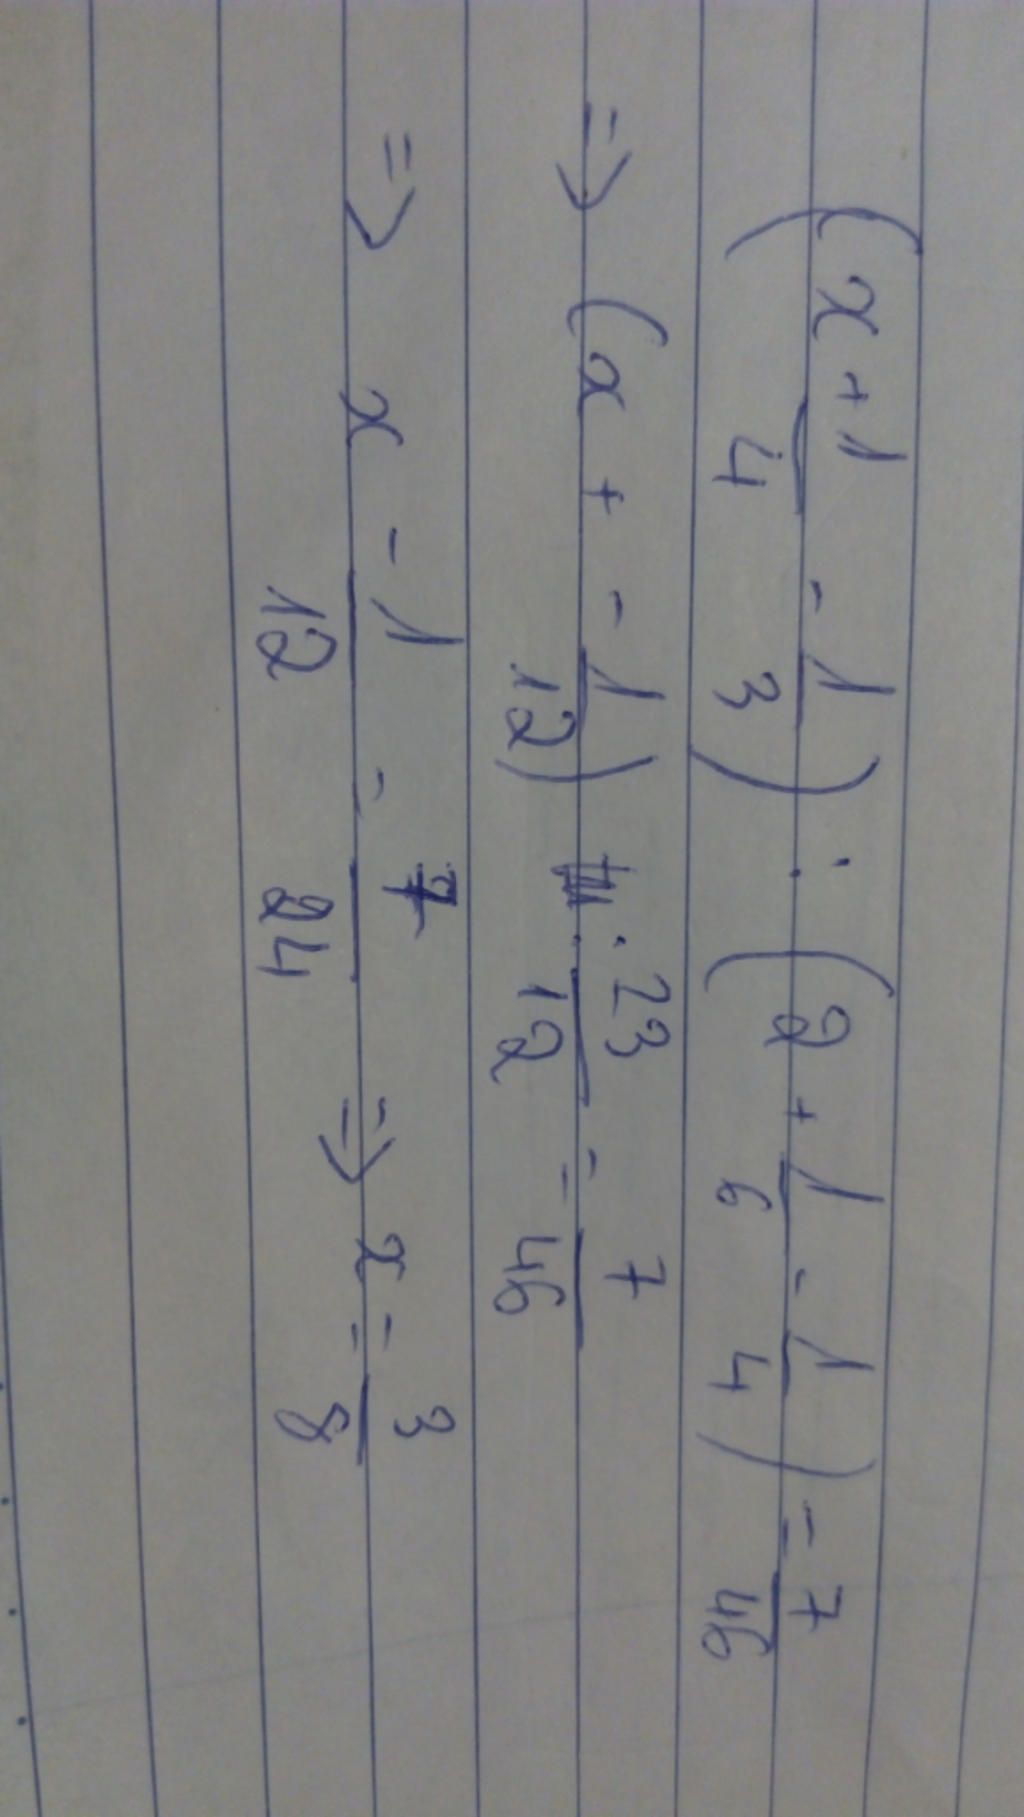 (x + 1/4 - 1/3) : (2 + 1/6 - 1/4) = 7/46
=> (x + - 1/12) : 23/12 = 7/46
=> x - 1/12 = 7/24 => x = 3/8